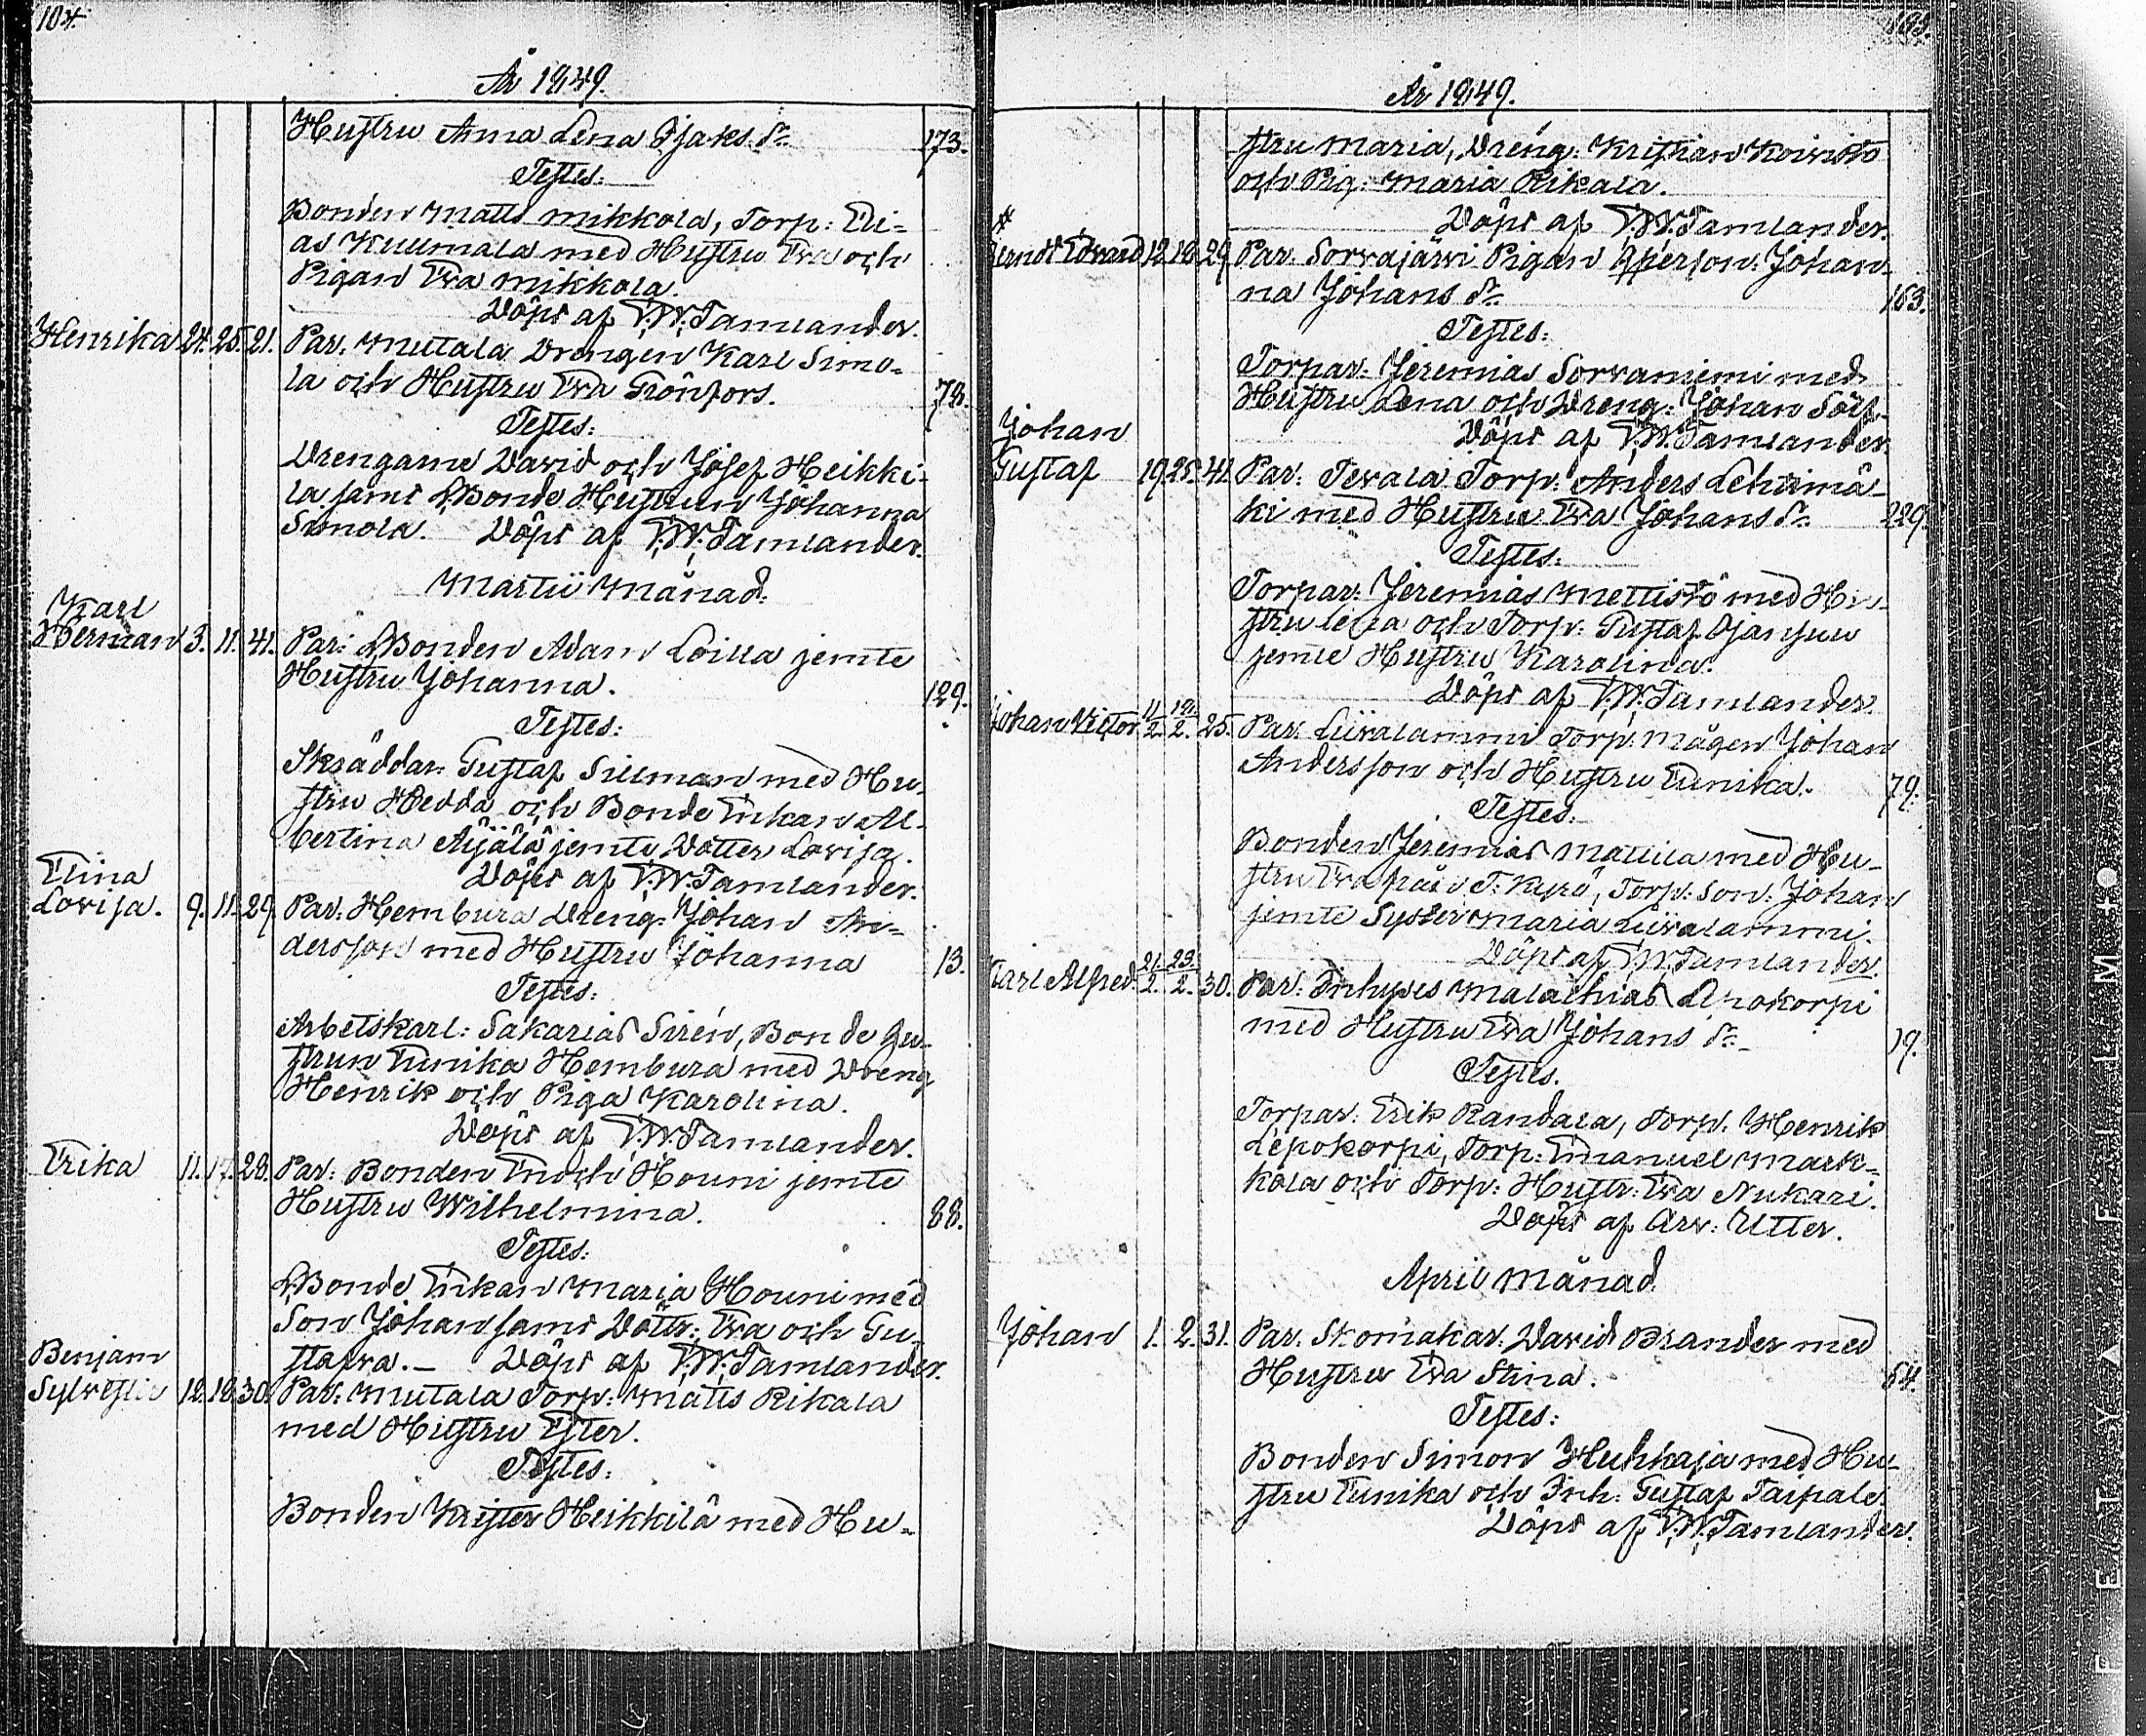 104.
År 1849.
Hustru Anna Lena Isaks dr.
173.
Testes:
Bonden Matts Mikkola, Torp: Eli=
as Kuumala med Hustru Eva och
Pigan Eva Mikkola.
Döpt af V.W.Tamlander.
Henrika 24. 25. 21. Par. Mutala Drengen Karl Simo=
la och Hustru Eva Grönfors. 78.
Testes:
Drengarne David och Josef Heikki-
la samt Bonde Hustrun Johanna
Simola. Döpt af V.W.Tamlander.
Martii Månad.
Karl
Herman 3. 11. 41. Par: Bonden Adam Loilla jemte
Hustru Johanna. 129.
Testes:
Skräddar: Gustaf Sillman med Hu-
stru Hedda och Bonde Enkan Al-
bertina Äijälä jemte Dotter Lovisa.
Döpt af V.W.Tamlander.
Elina
Lovisa. 9. 11. 29. Par: Hembura Dreng: Johan An=
dersson med Hustru Johanna 13.
Testes:
Arbetskarl: Sakarias Sirén, Bonde hu-
strun Eunika Hembura med Dreng
Henrik och Piga Karolina.
Döpt af V.W.Tamlander.
Erika 11. 17. 28. Par: Bonden Enoch Houni jemte
Hustru Wilhelmina. 88.
Testes:
Bonde Enkan Maria Houni med
Son Johan samt Döttr: Eva och Gu-
stafva.- Döpt af V.W.Tamlander.
Benjam
Sylvester 12. 18. 30. Par: Mutala Torp: Matts Rikala
med Hustru Ester.
Testes:
Bonden Krister Heikkilä med Hu=
År 1849.
stru Maria, Dreng: Kristian Koivisto
och Pig: Maria Rikala.
Döpt af V.W.Tamlander.
Berndt Edvard 12 18 29. Par. Sorvajärvi Pigan Qpersson: Johan-
na Johans dr. 163.
Testes:
Torpar: Jeremias Sorvaniemi med
Hustru Lena och Dreng: Johan
Döpt af V.W.Tamlander.
Johan
Gustaf 19. 25. 41. Par: Tevala Torp: Anders Lehtimä-
ki med Hustru Eva Johans dr. 229.
Testes:
Torpar: Jeremias Mettistö med Hu-
stru Lena och Torp: Gustaf Ojansuu
jemte Hustru Karolina.
Döpt af V.W.Tamlander.
Johan Victor. 11/2. 18/2. 25. Par: Liivalammi Torp: Mågen Johan
Andersson och Hustru Eunika. 79.
Testes:
Bonden Jeremias Mattila med Hu-
stru Eva från T. Kyrö, Torp: Son: Johan
jemte Syster Maria Liivalammi.
Döpt af V.W.Tamlander.
Karl Alfred. 21/2. 23/2. 30. Par: Inhyses Malachias Lepokorpi
med Hustru Eva Johans dr.
Testes.
Torpar: Erik Randala, Torp. Henrik
Lepokorpi, Torp: Emanuel Mark-
kola och Torp: Hustr: Eva Nukari.
Döpt af Arv: Utter.
April Månad
Johan 1. 2. 31. Par. Skomakar. David Brander med
Hustru Eva Stina. 64.
Testes:
Bonden Simon Huhkaja med Hu-
stru Eunika och Inh: Gustaf Taipale.
Döpt af V.W.Tamlander.